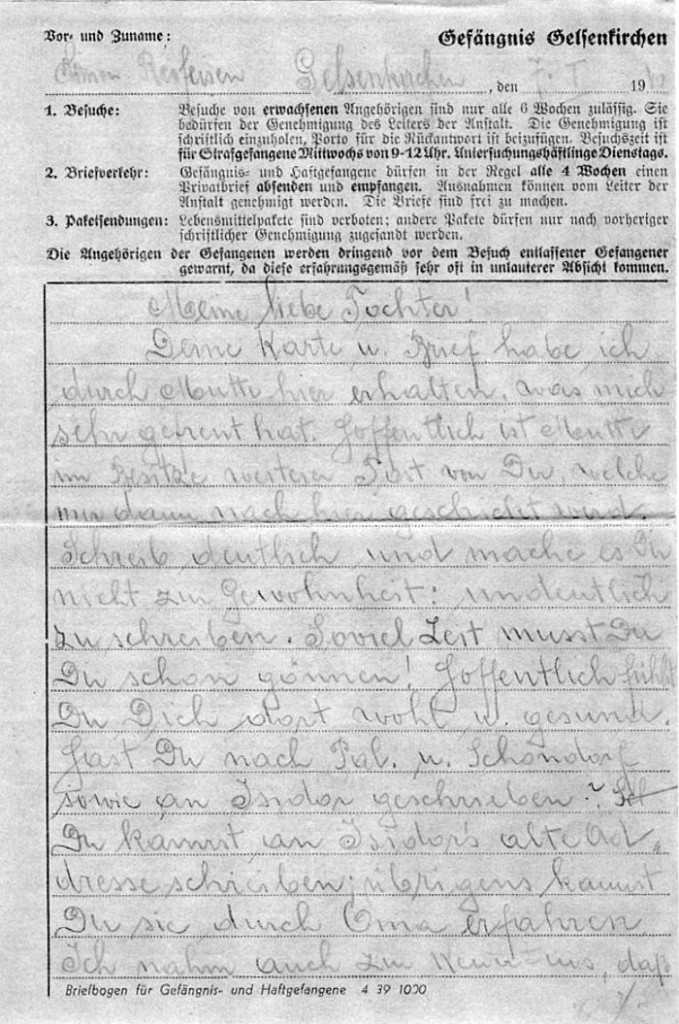 Vor- und Zuname:
Gefängnis Gelsenkirchen
Gelsenkirchen, den 7. I 19
1. Besuche: Besuche von erwachsenen Angehörigen sind nur alle 6 Wochen zulässig. Sie
bedürfen der Genehmigung des Leiters der Anstalt. Die Genehmigung ist
schriftlich einzuholen, Porto für die Rückantwort ist beizufügen. Besuchszeit ist
für Strafgefangene Mittwochs von 9-12 Uhr. Untersuchungshäftlinge Dienstags.
2. Briefverkehr: Gefängnis- und Haftgefangene dürfen in der Regel alle 4 Wochen einen
Privatbrief absenden und empfangen. Ausnahmen können vom Leiter der
Anstalt genehmigt werden. Die Briefe sind frei zu machen.
3. Paketsendungen: Lebensmittelpakete sind verboten; andere Pakete dürfen nur nach vorheriger
schriftlicher Genehmigung zugesandt werden.
Die Angehörigen der Gefangenen werden dringend vor dem Besuch entlassener Gefangener
gewarnt, da diese erfahrungsgemäß sehr oft in unlauterer Absicht kommen.
Meine liebe Tochter!
Deine Karte u. Brief habe ich
durch Mutti hier erhalten, was mich
sehr gefreut hat. Hoffentlich ist Mutti
im Besitze weiterer Post von Dir, welche
mir dann nach hier geschickt wird.
Schreib deutlich und mache es Dir
nicht zur Gewohnheit: undeutlich
zu schreiben. Soviel Zeit musst Du
Du schon gönnen! Hoffentlich fühlst
Du Dich dort wohl u. gesund.
Hast Du nach Pal. u. Schöndorf
sowie an Isidor geschrieben?
Du kannst an Isidor's alte Ad-
dresse schreiben; übrigens kannst
Du sie durch Oma erfahren
Ich nahm auch zur Kenntnis, daß
Briefbogen für Gefängnis- und Haftgefangene 4 39 1000